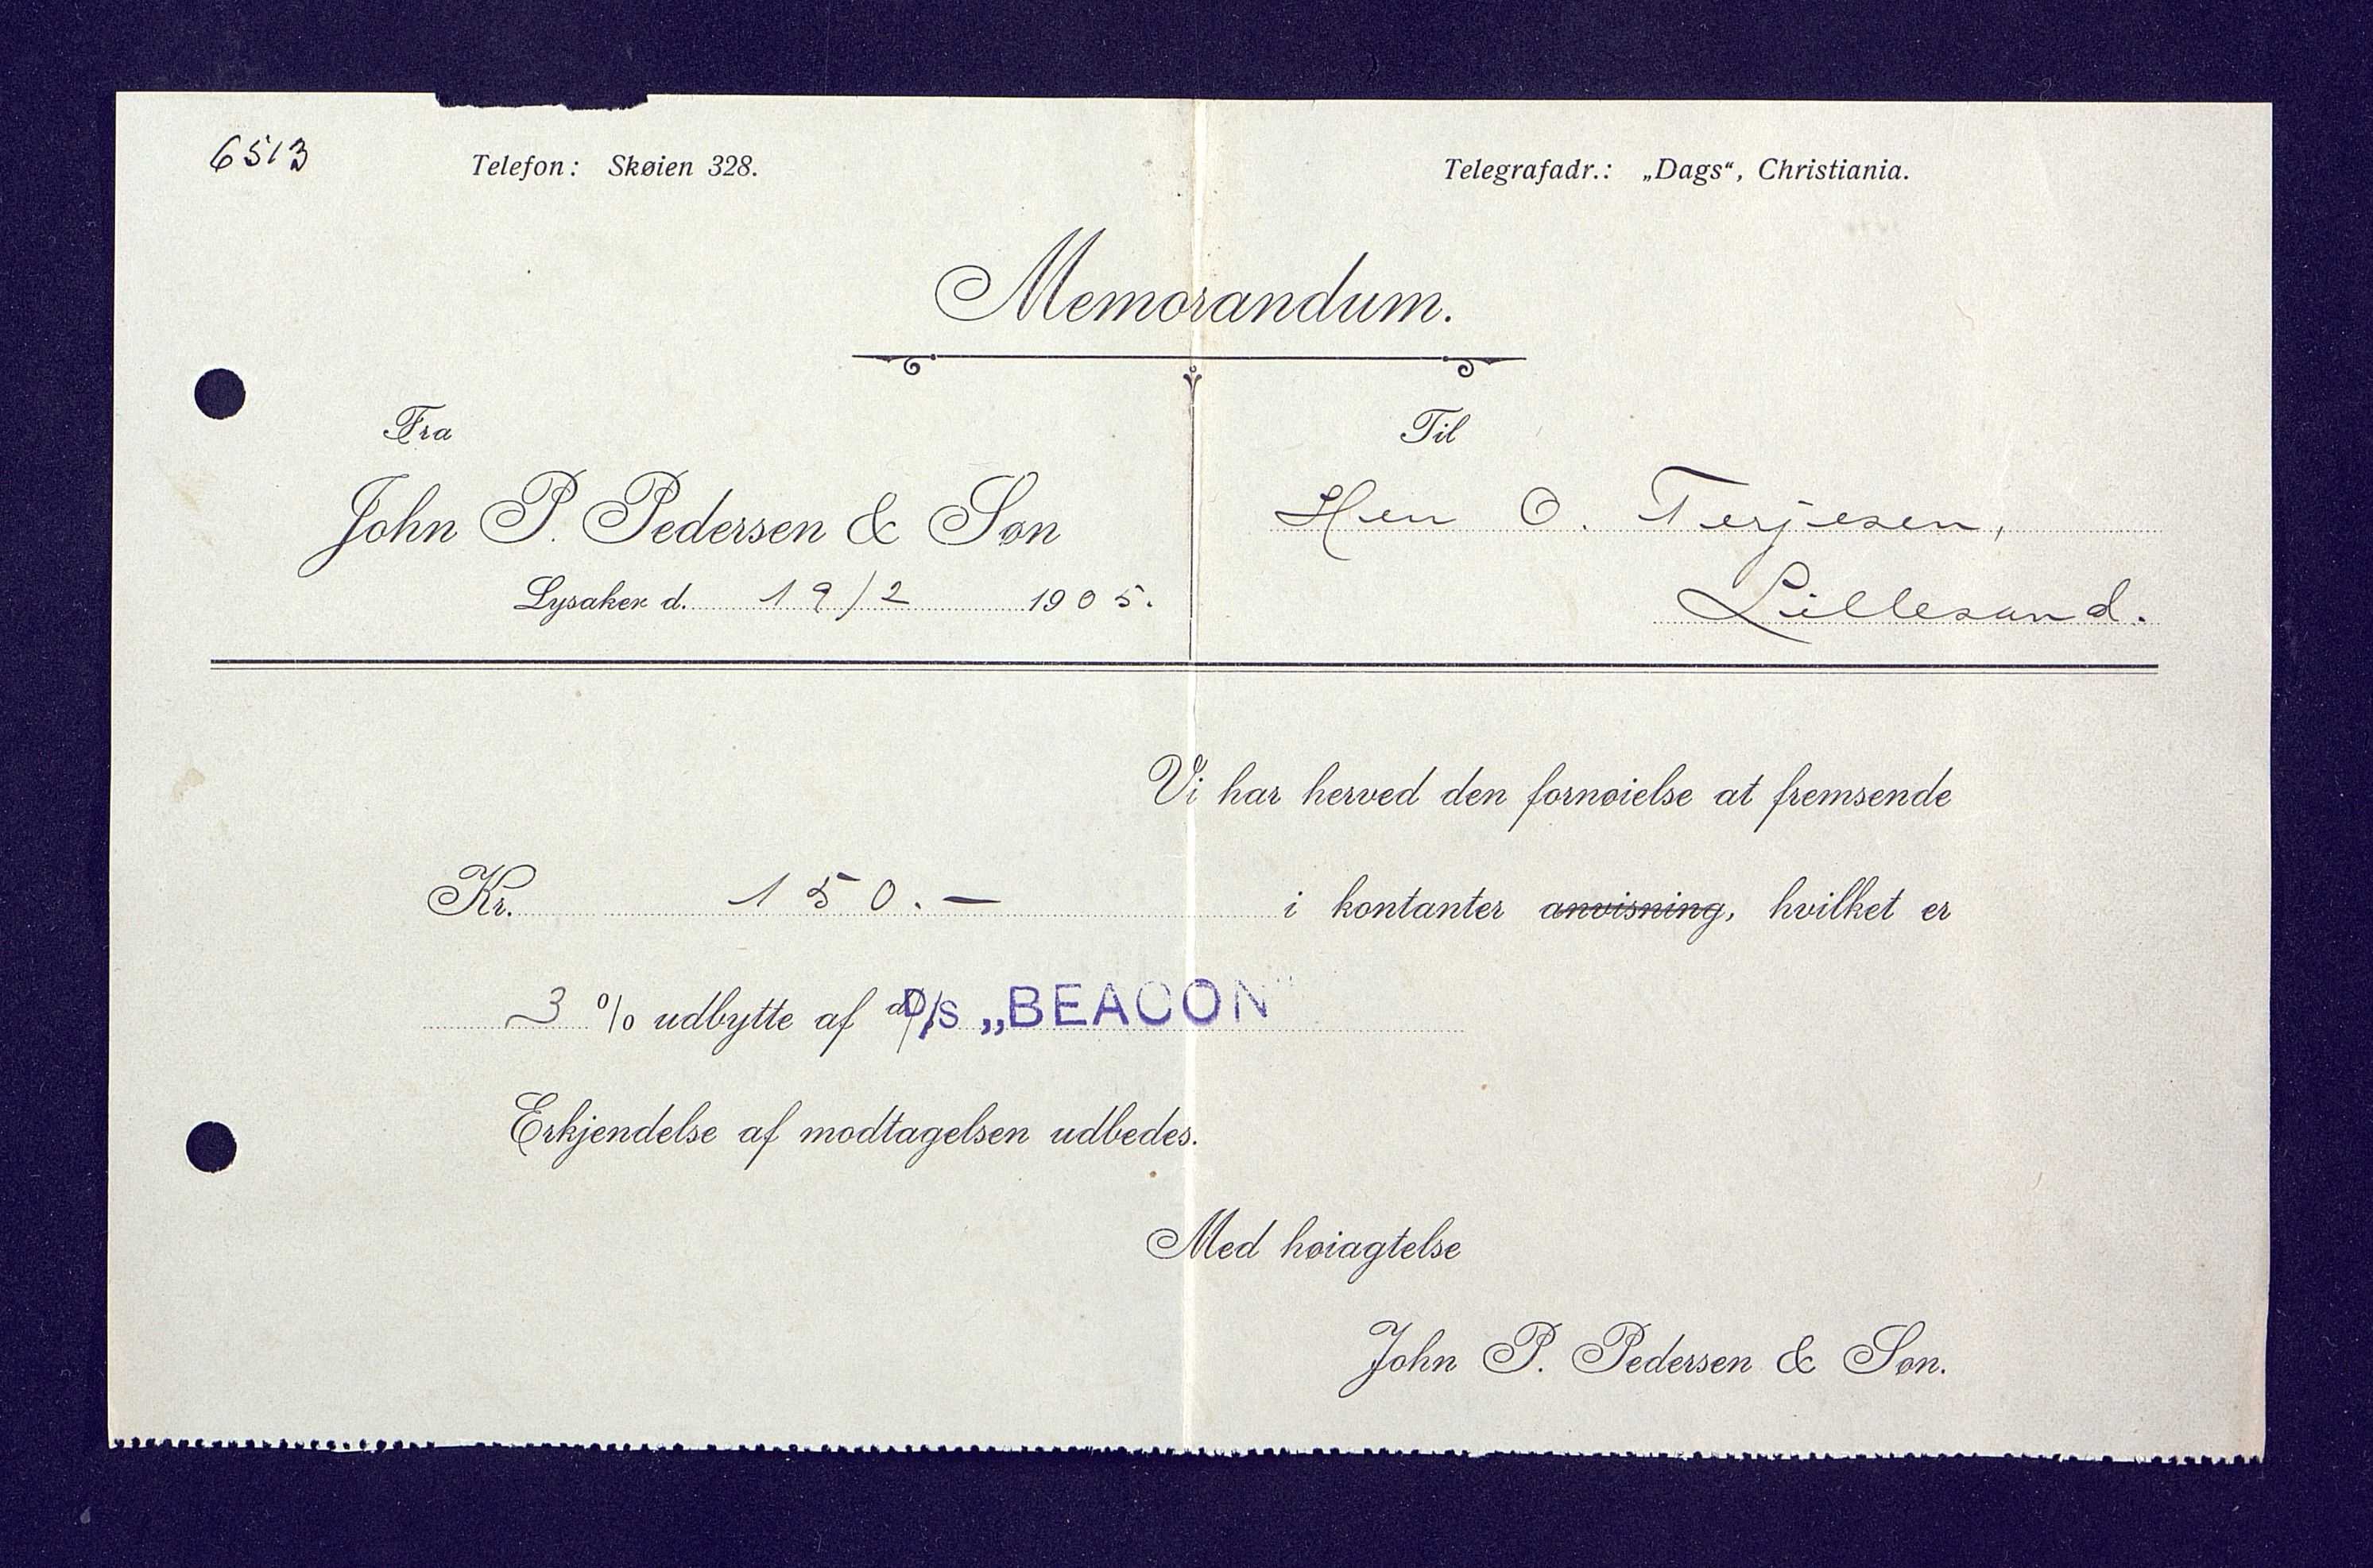 6513
Telefon: Skøien 328.
Telegrafadr.: „Dags“, Christiania.
Memorandum.
Fra
Til
John P. Pedersen & Søn
Herr O. Terjesen,
Lysaker d. 19/2 1905.
Lillesand.
Vi har herved den fornøielse at fremsende
Kr. 150.— i kontanter anvisning, hvilket er
3 % udbytte af D/S „BEACON“
Erkjendelse af modtagelsen udbedes.
Med høiagtelse
John P. Pedersen & Søn.